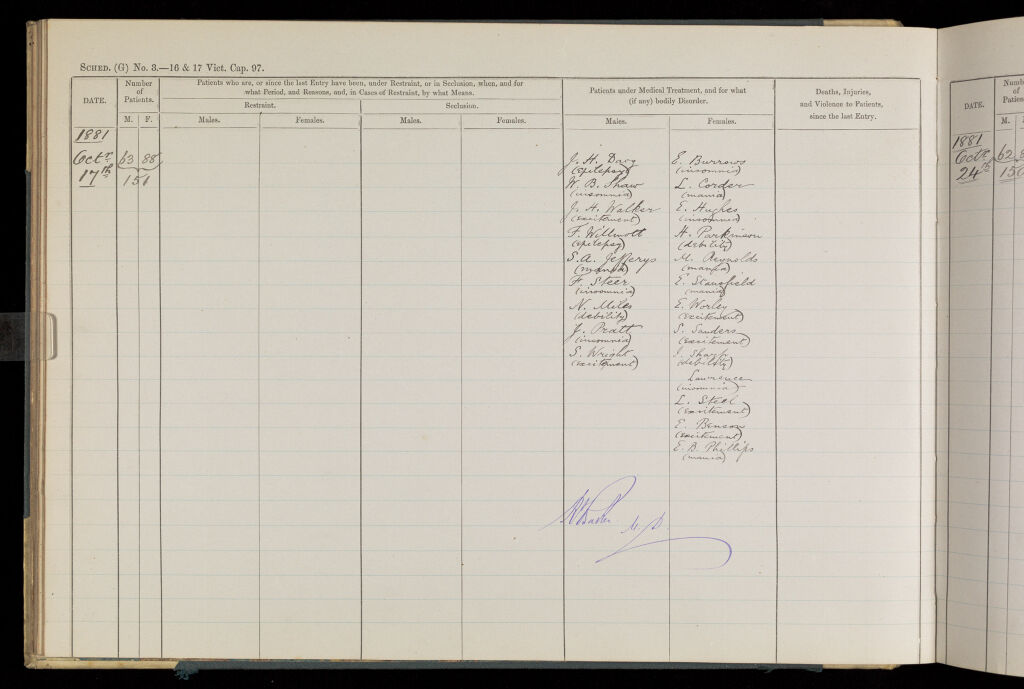 SCHED. (G) No. 3.—16 & 17 Vict. Cap. 97.
DATE.
Number of Patients.
M. F.
Patients who are, or since the last Entry have been, under Restraint, or in Seclusion, when, and for
what Period, and Reasons, and, in Cases of Restraint, by what Means.
Restraint.
Seclusion.
Males.
Females.
Males.
Females.
Patients under Medical Treatment, and for what
(if any) bodily Disorder.
Males.
Females.
Deaths, Injuries,
and Violence to Patients,
since the last Entry.
1881
Octr
17th
63 88
151
J. H. Davy
(epilepsy)
W. B. Shaw
(insomnia)
J. H. Walker
(excitement)
F. Willmott
(epilepsy)
S. A. Jefferys
(mania)
F. Steer
(insomnia)
N. Miles
(debility)
J. Pratt
(insomnia)
S. Wright
(excitement)
E. Burrows
(insomnia)
L. Corder
(mania)
E. Hughes
(insomnia)
H. Parkinson
(debility)
M. Reynolds
(mania)
E. Stansfield
(mania)
E. Worley
(excitement)
S. Sanders
(excitement)
Sharp
(debility)
Lawrence
(insomnia)
L. Steel
(excitement)
E. Benson
(excitement)
E. B. Phillips
(mania)
M.D.
DATE.
M.
1881
Octr
24th
62